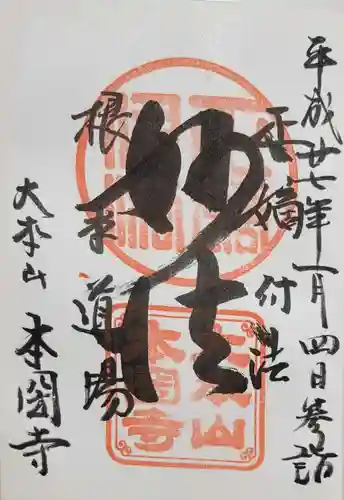 平成廿七年一月四日参詣
正嫡付法
妙法
根本道場
大本山
本圀寺
大本山
本圀寺